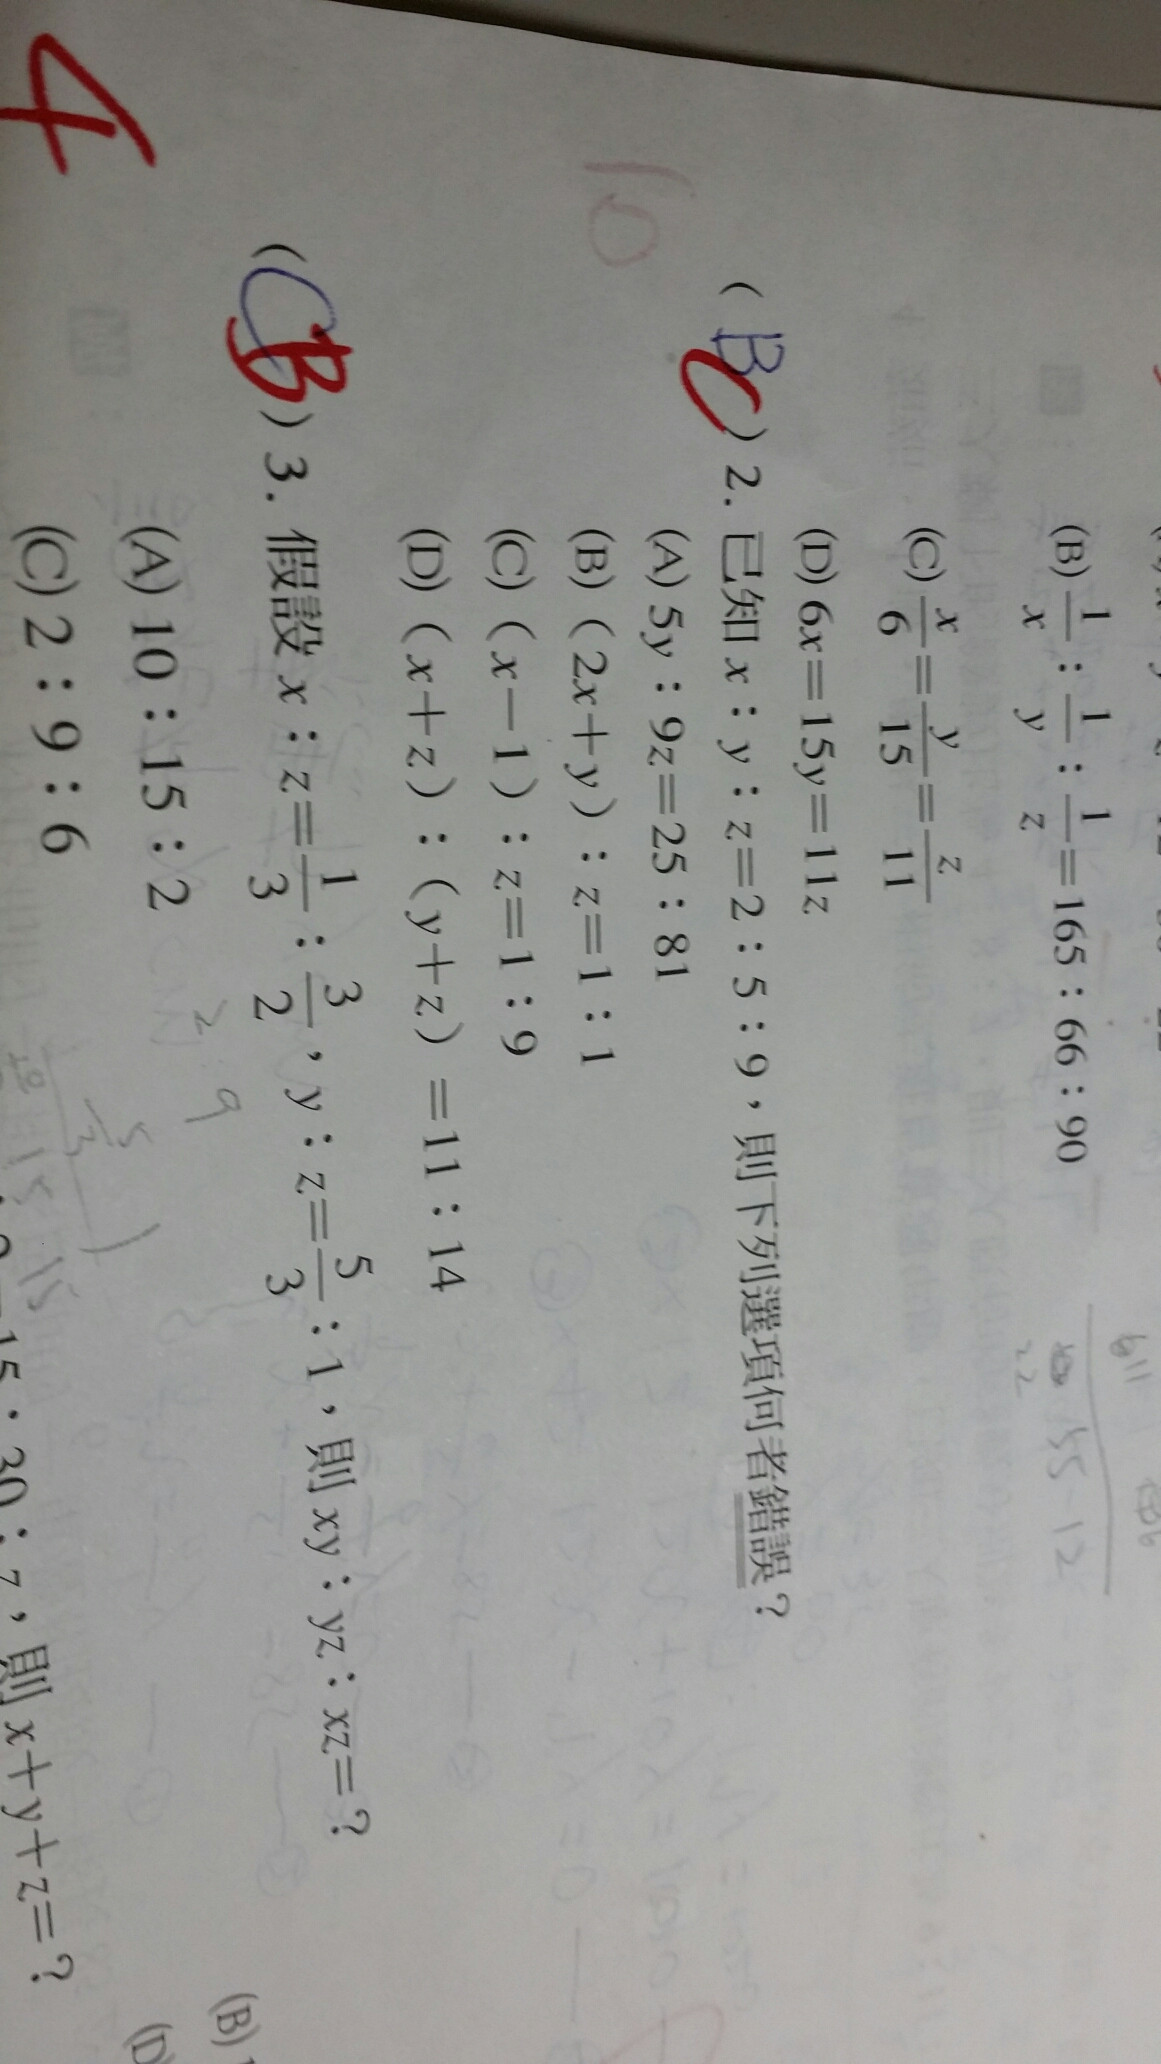 (B) 1/x : 1/y : 1/z = 165 : 66 : 90
(C) x/6 = y/15 = z/11
(D) 6x = 15y = 11z
( B C ) 2. 已知 x : y : z = 2 : 5 : 9,則下列選項何者錯誤?
(A) 5y : 9z = 25 : 81
(B) (2x+y) : z = 1 : 1
(C) (x-1) : z = 1 : 9
(D) (x+z) : (y+z) = 11 : 14
( C B ) 3. 假設 x : z = 1/3 : 3/2,y : z = 5/3 : 1,則 xy : yz : xz = ?
(A) 10 : 15 : 2
(B)
(C) 2 : 9 : 6
(D
15 : 30 : 7,則 x+y+z = ?
4
10